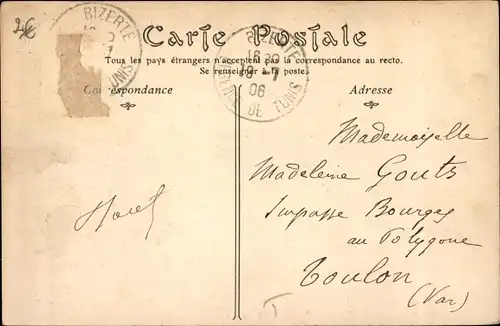 2€
BIZERTE
Carte Postale
BIZERTE
16 30
18 -7
06
DE TUNIS
Tous les pays étrangers n'acceptent pas la correspondance au recto.
Se renseigner à la poste.
Correspondance
Adresse
Mademoiselle
Madeleine Gouts
Impasse Bourges
au Polygone
Toulon
(Var)